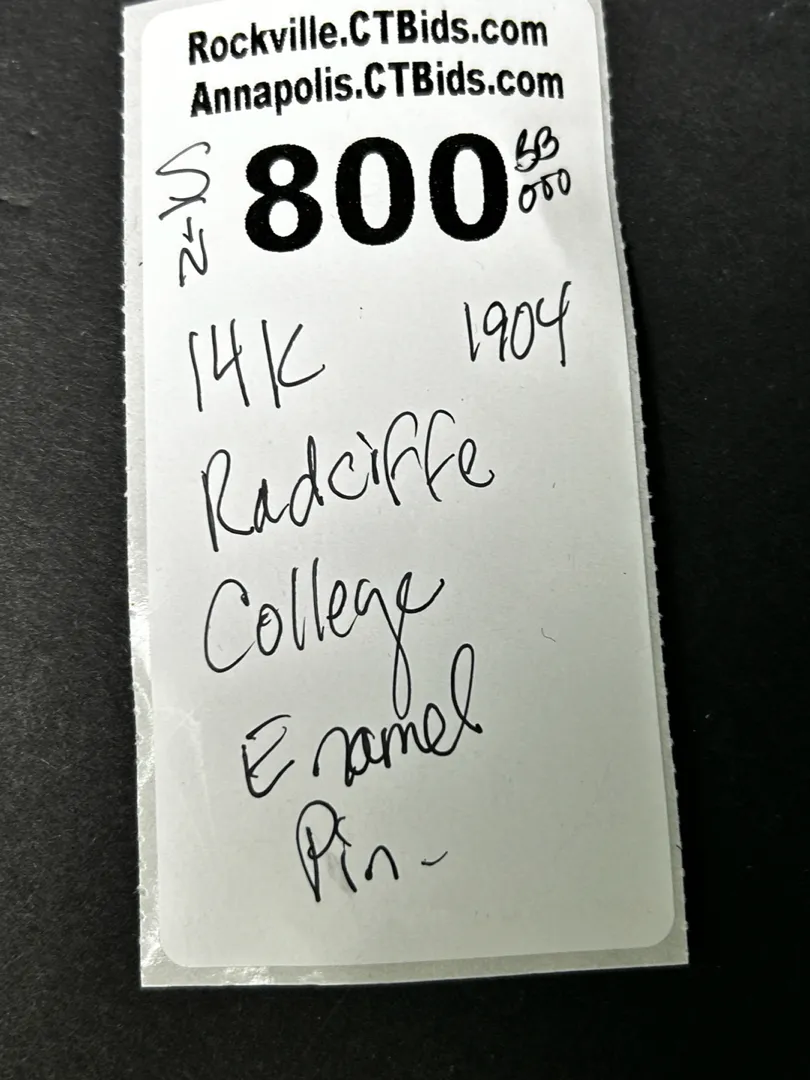 Rockville.CTBids.com
Annapolis.CTBids.com
800
14K 1904
Radciffe
College
Enamel
Pin-